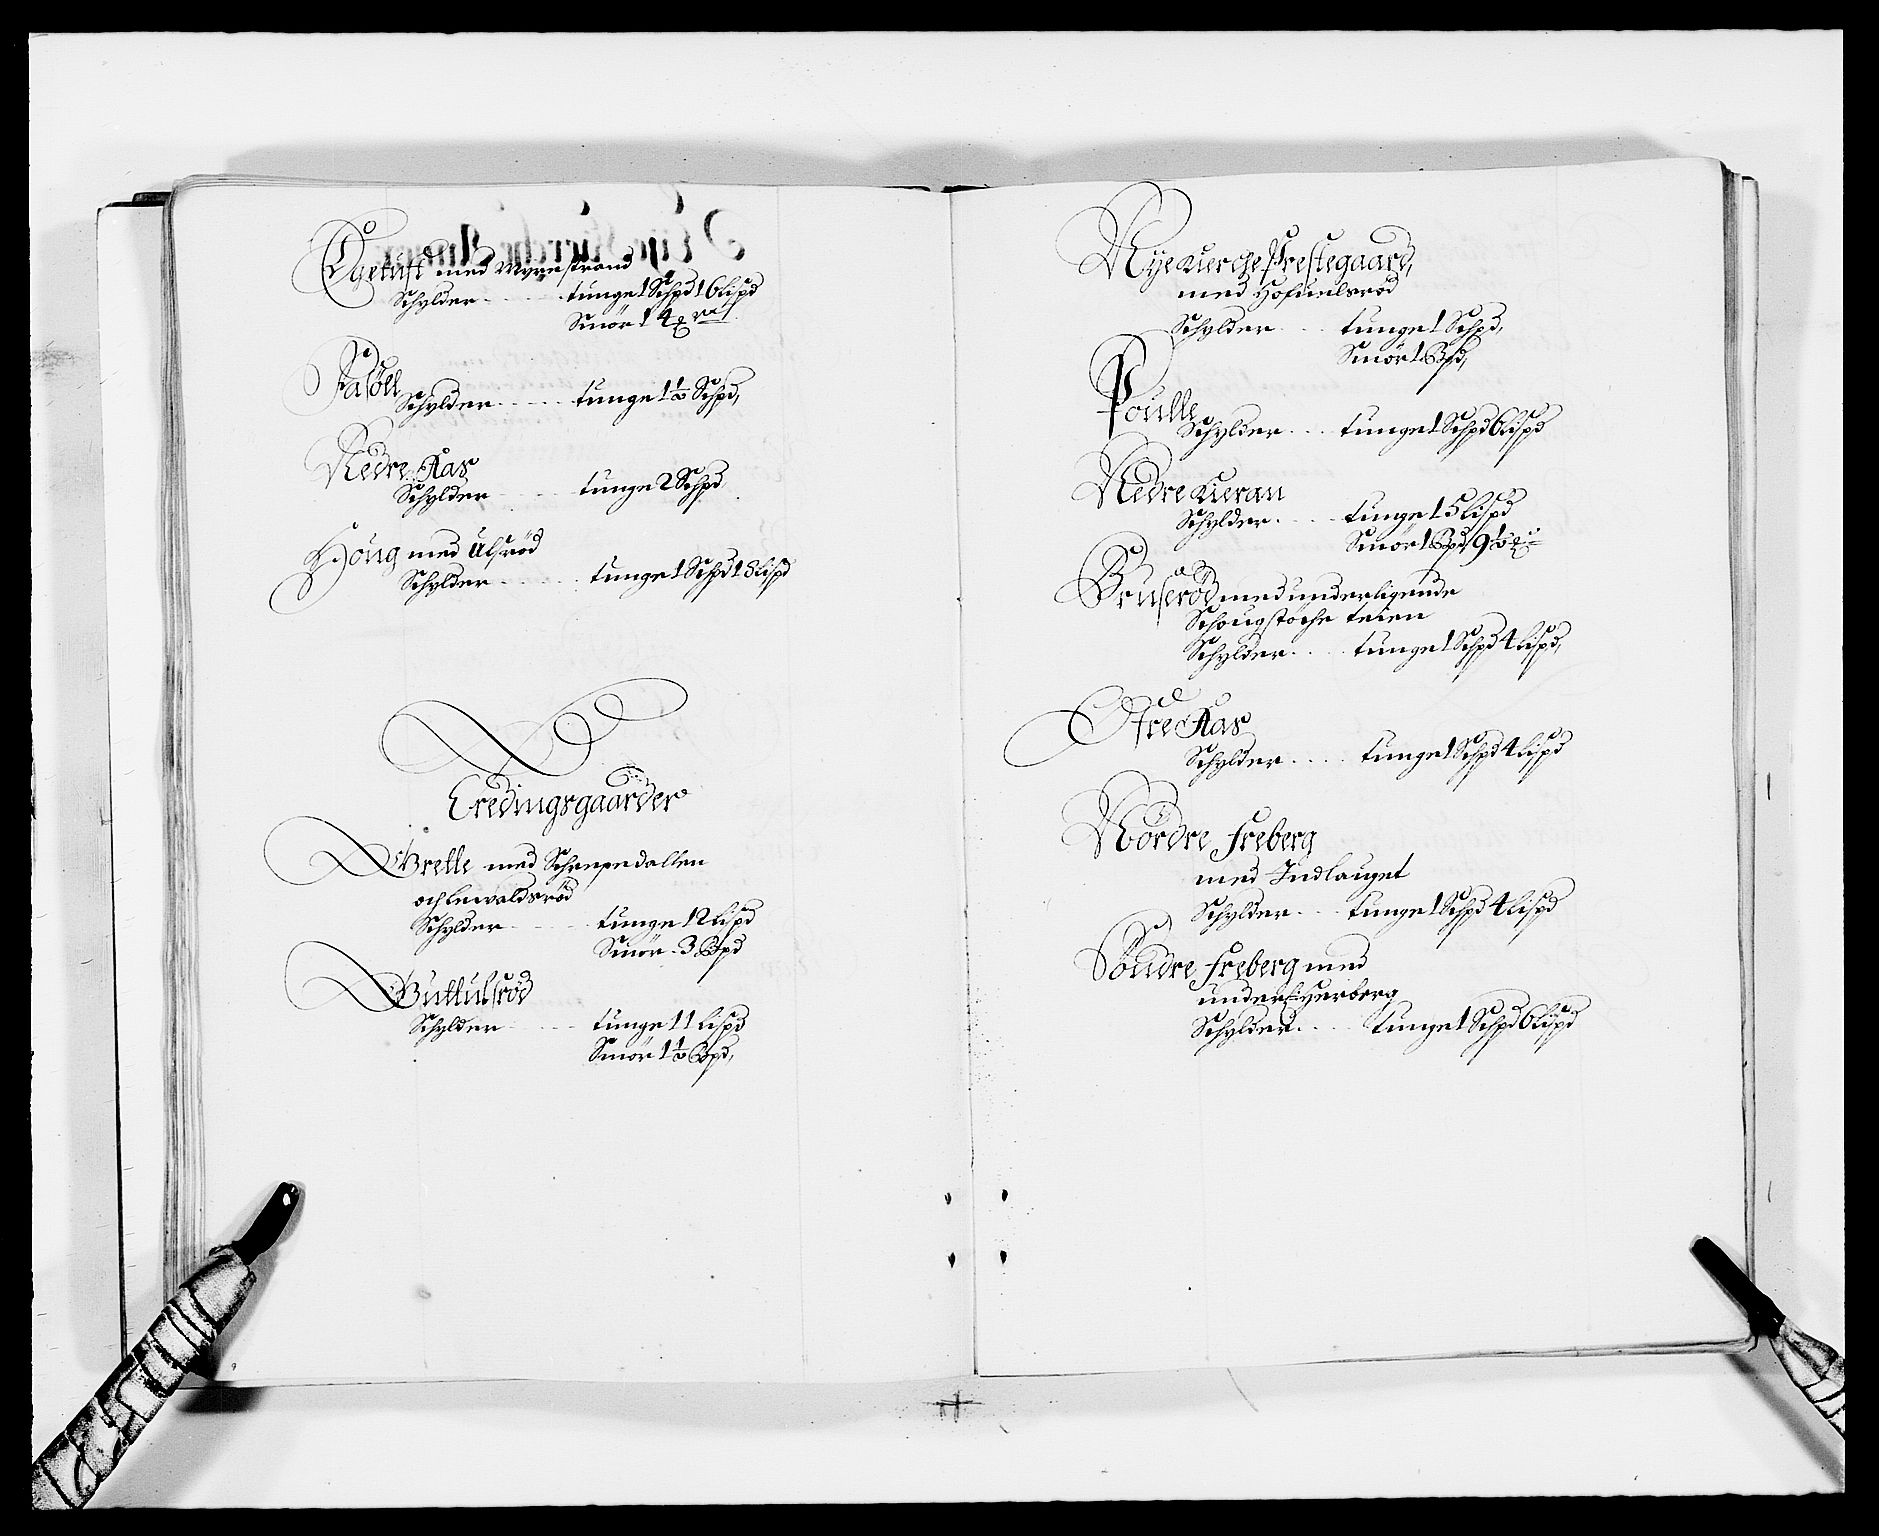 med Myrestrand
Schylder - - - tunge 1 Schpd 16 lispd
Smör 14
Fasöll
Schylder - - - - tunge 1½ Schpd,
Nedre Aas
Schylder - - - tunge 2 Schpd,
Höug med Ulfsröd
Schylder - - - - - tunge 1 Schpd 15 lispd
Eredingsgaarder
Grelle med Schrepedallen
och lewaldsröd
Schylder - - - - tunge 12 lispd
Smör - 3 Bpd
Gullulsröd
Schylder - - - - tunge 11 lispd
Smör 1½ Bpd,
Nye Kierche Prestegaard,
med
Schylder - - - tunge 1 Schpd,
Smör 1 Bpd,
Poulle
Schylder - - - tunge 1 Schpd 6 lispd
Nedre Kieran
Schylder - - - tunge 15 lispd
Smör 1 Bpd 9½
Bruseröd med underligende
Schougstöche teien
Schylder - - - tunge 1 Schpd 4 lispd,
Öfre Aas
Schylder - - - - tunge 1 Schpd 4 lispd
Nördre Freberg
med Indlauget
Schylder - - - tunge 1 Schpd 4 lispd
Söndre Freberg med
under: Herberg
Schylder - - - tunge 1 Schpd 6 lispd